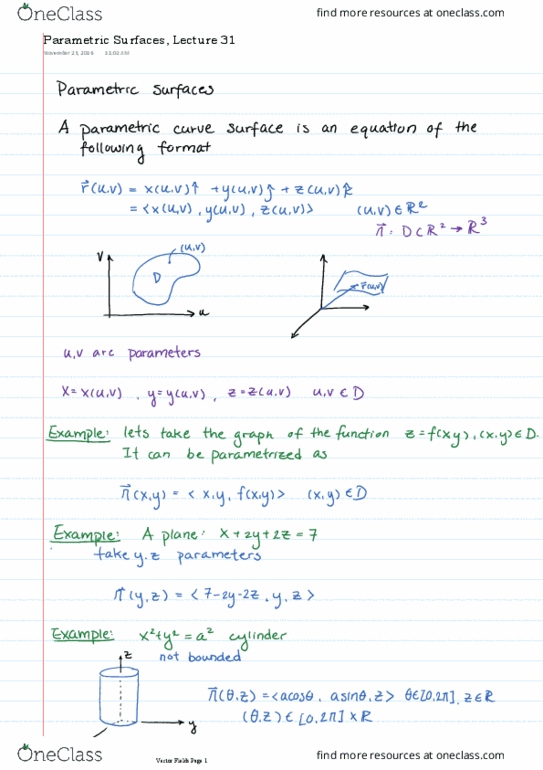 OneClass find more resources at oneclass.com
Parametric Surfaces, Lecture 31
Parametric surfaces
A parametric curve surface is an equation of the
following format
r⃗(u,v) = x(u,v)î + y(u,v)ĵ + z(u,v)k̂
= <x(u,v), y(u,v), z(u,v)> (u,v) ∈ R²
r⃗: D⊂R² → R³
v (u,v)
D
r⃗(u,v)
u
u,v are parameters
x=x(u,v), y=y(u,v), z=z(u,v) u,v ∈ D
Example: lets take the graph of the function z=f(x,y), (x,y)∈D.
It can be parametrized as
r⃗(x,y) = <x,y, f(x,y)> (x,y)∈D
Example: A plane: x+2y+2z=7
take y,z parameters
r⃗(y,z) = <7-2y-2z, y, z>
Example: x²+y²=a² cylinder
z not bounded
r⃗(θ,z)=<acosθ, asinθ, z> θ∈[0,2π], z∈R
(θ,z)∈[0,2π]×R
y
OneClass find more resources at oneclass.com
Vector Fields Page 1